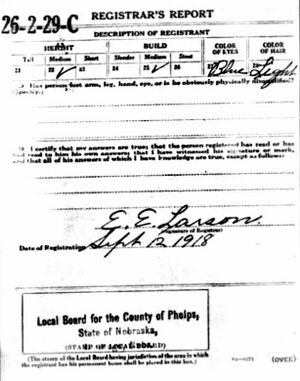 REGISTRAR'S REPORT
26-2-29-C
DESCRIPTION OF REGISTRANT
HEIGHT BUILD COLOR OF EYES COLOR OF HAIR
Tall Medium Short Slender Medium Stout
21 22 ✓ 23 24 25 ✓ 26 27 Blue Light
29 Has person lost arm, leg, hand, eye, or is he obviously physically disqualified?
(Specify.)
30 I certify that my answers are true; that the person registered has read or has
had read to him his own answers; that I have witnessed his signature or mark,
and that all of his answers of which I have knowledge are true, except as follows:
E. E. Larson
(Signature of Registrar)
Date of Registration Sept. 12 1918
Local Board for the County of Phelps,
State of Nebraska,
(STAMP OF LOCAL BOARD)
(The stamp of the Local Board having jurisdiction of the area in which
the registrant has his permanent home shall be placed in this box.)
(OVER)